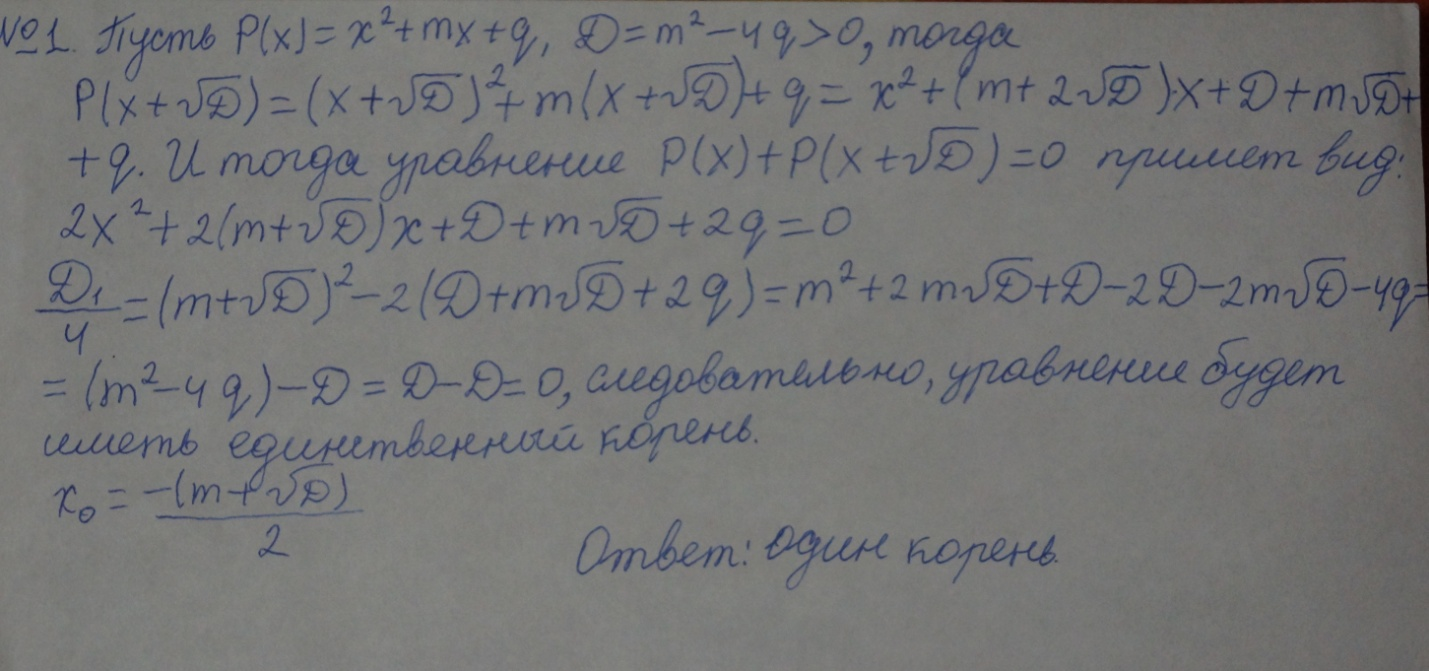 №1. Пусть P(x)=x²+mx+q, D=m²-4q>0, тогда
P(x+√D)=(x+√D)²+m(x+√D)+q=x²+(m+2√D)·x+D+m√D+
+q. И тогда уравнение P(x)+P(x+√D)=0 примет вид:
2x²+2(m+√D)x+D+m√D+2q=0
D₁/4=(m+√D)²-2(D+m√D+2q)=m²+2m√D+D-2D-2m√D-4q=
=(m²-4q)-D=D-D=0, следовательно, уравнение будет
иметь единственный корень.
x₀=-(m+√D)/2
Ответ: один корень.